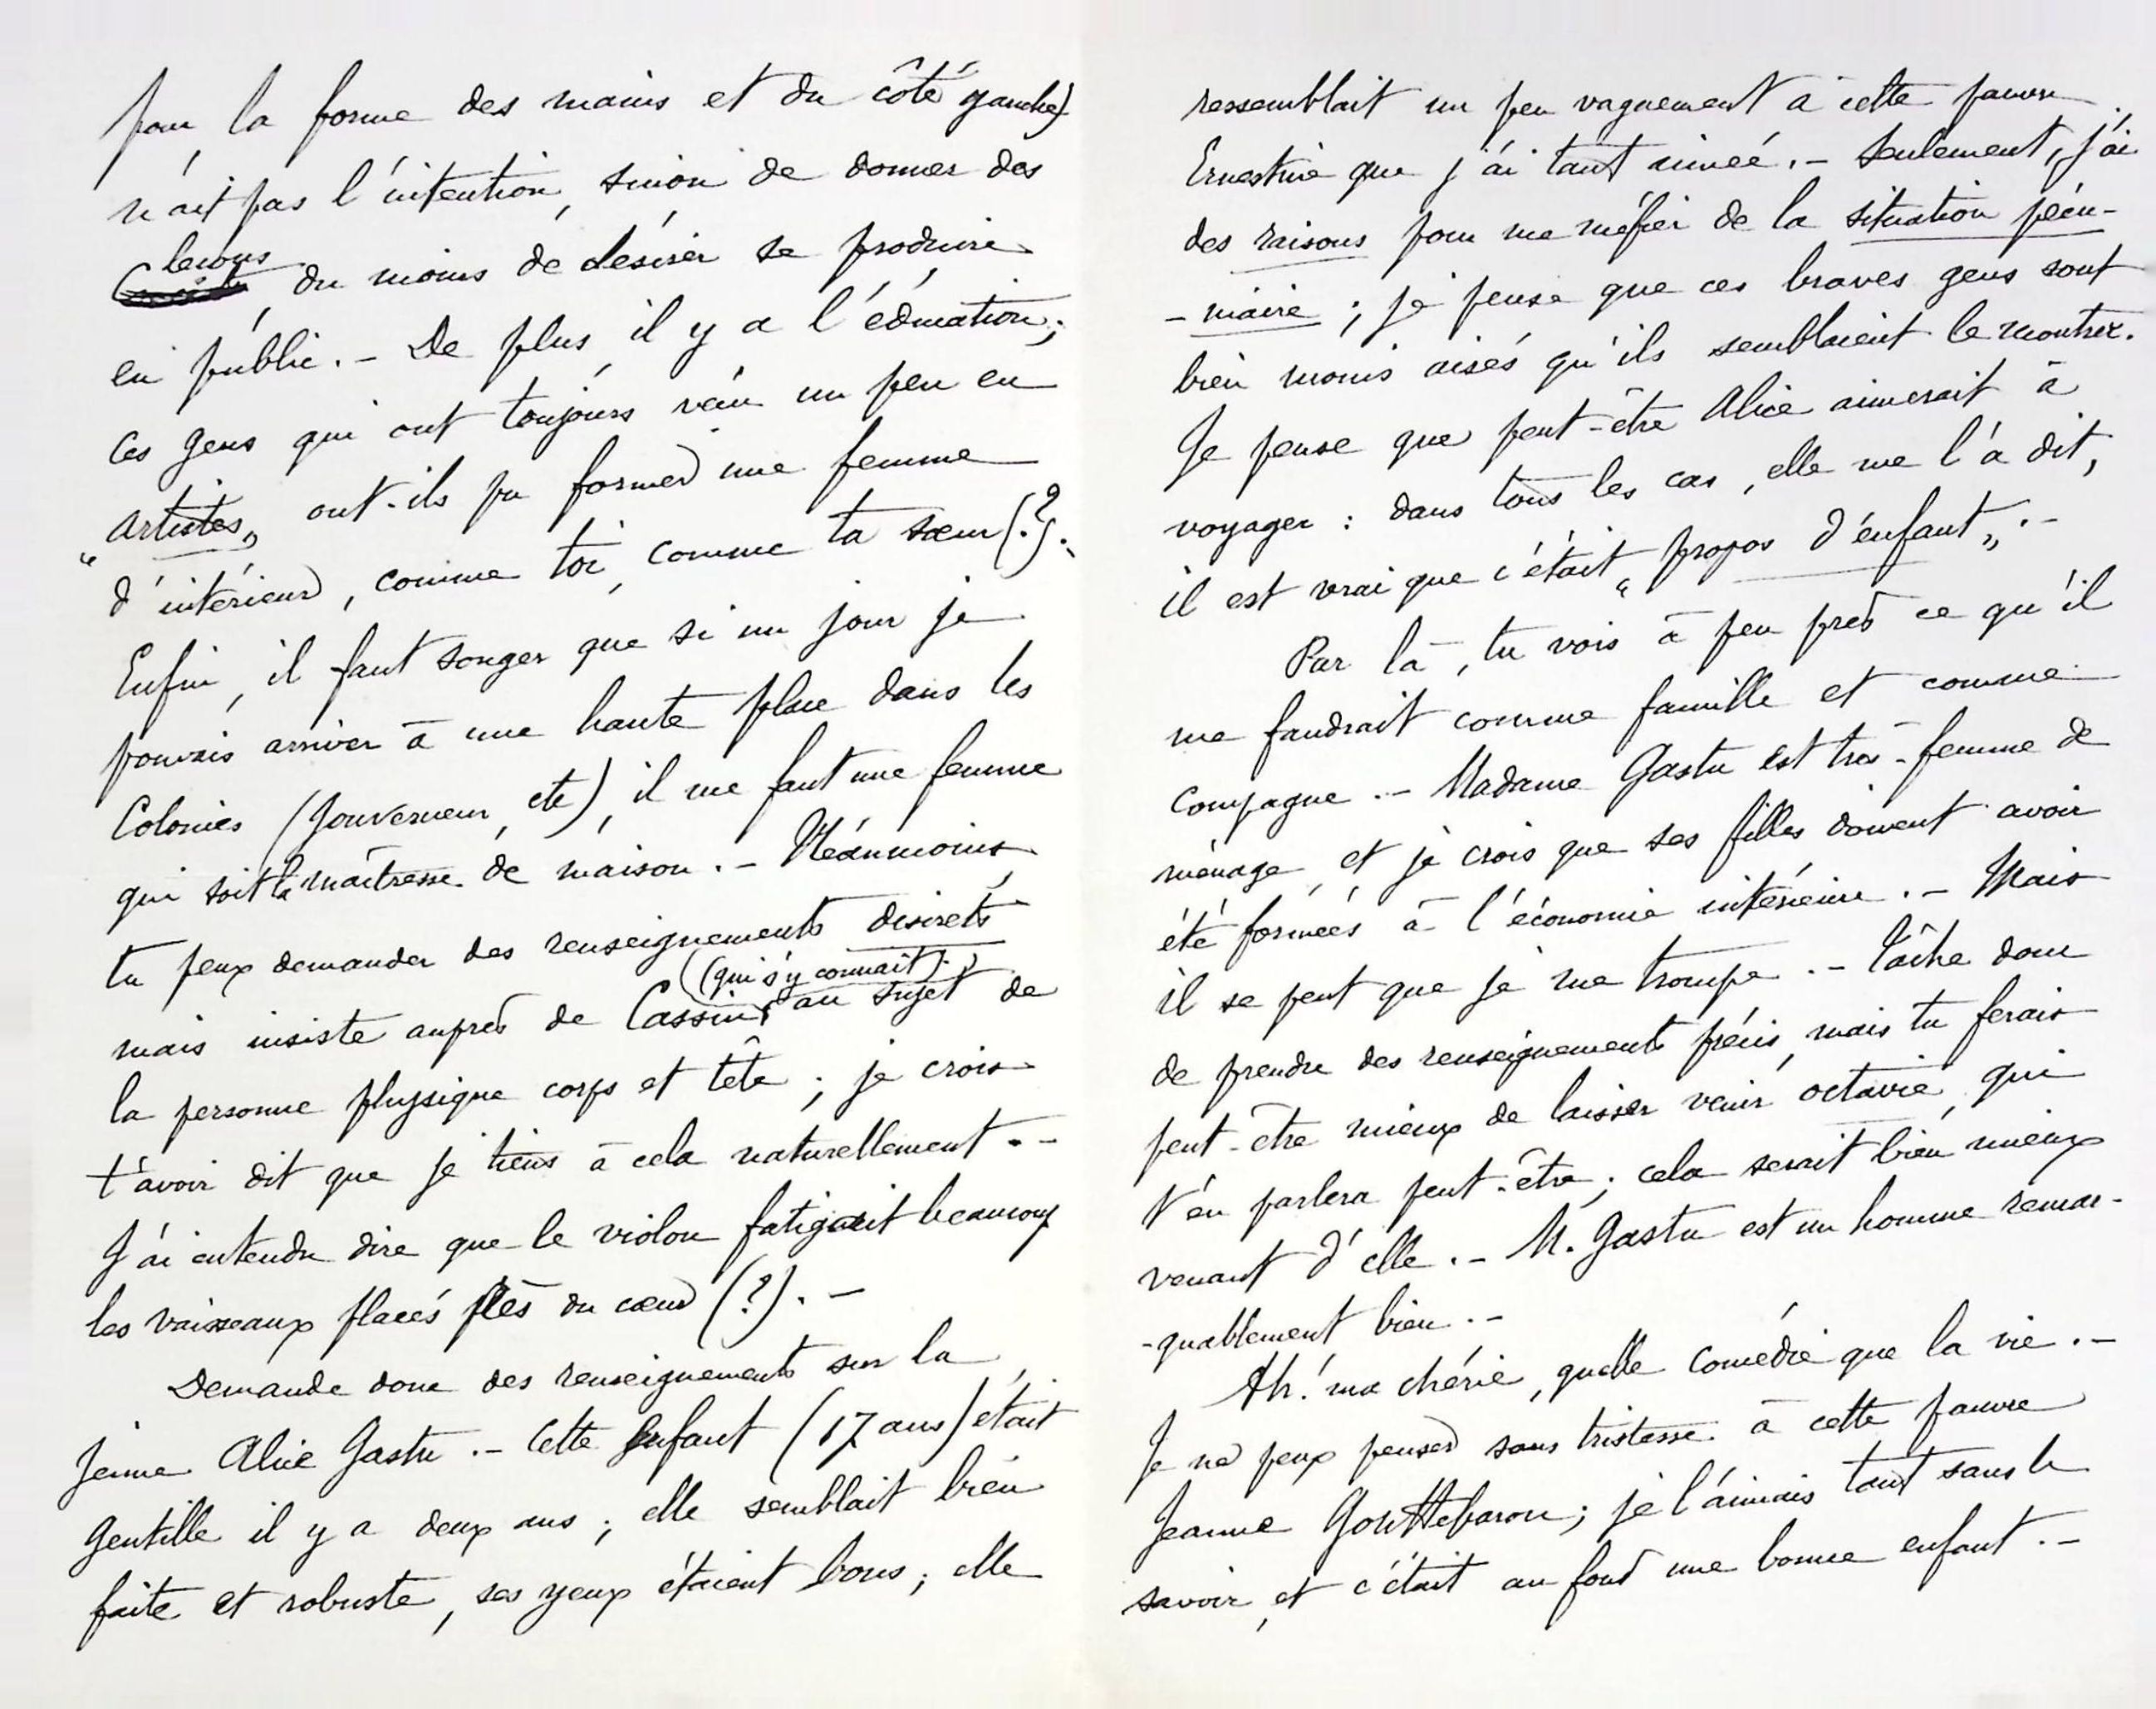 pour la forme des mains et du côté gauche)
n'ait pas l'intention, sinon de donner des
leçons, du moins de désirer se produire
en public. — De plus, il y a l'éducation;
ces gens qui ont toujours vécu un peu en
"artistes" ont-ils pu former une femme
d'intérieur, comme toi, comme ta sœur (?).
Enfin, il faut songer que si un jour je
pouvais arriver à une haute place dans les
Colonies (Gouverneur, etc), il me faut une femme
qui soit la maîtresse de maison. — Néanmoins,
tu peux demander des renseignements discrets
(qui s'y connait)
mais insiste auprès de Cassin, au sujet de
la personne physique corps et tête; je crois
t'avoir dit que je tiens à cela naturellement. —
J'ai entendu dire que le violon fatiguait beaucoup
les vaisseaux placés près du cœur (?). —
Demande donc des renseignements sur la
jeune Alice Gastu. — Cette enfant (17 ans) était
gentille il y a deux ans; elle semblait bien
faite et robuste, ses yeux étaient bons; elle
ressemblait un peu vaguement à cette pauvre
Ernestine que j'ai tant aimée. — Seulement, j'ai
des raisons pour me méfier de la situation pécu-
-niaire; je pense que ces braves gens sont
bien moins aisés qu'ils semblaient le montrer.
Je pense que peut-être Alice aimerait à
voyager: dans tous les cas, elle me l'a dit,
il est vrai que c'était "propos d'enfant". —
Par là, tu vois à peu près ce qu'il
me faudrait comme famille et comme
compagne. — Madame Gastu est très-femme de
ménage, et je crois que ses filles doivent avoir
été formées à l'économie intérieure. — Mais
il se peut que je me trompe. — Tâche donc
de prendre des renseignements précis, mais tu ferais
peut-être mieux de laisser venir octavie, qui
t'en parlera peut-être; cela serait bien mieux
venant d'elle. — M. Gastu est un homme remar-
-quablement bien. —
Ah! ma chérie, quelle comédie que la vie. —
Je ne peux penser sans tristesse à cette pauvre
Jeanne Gouttebaron; je l'aimais tant sans le
savoir, et c'était au fond une bonne enfant. —